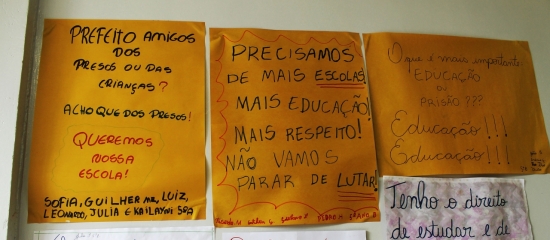 PREFEITO AMIGOS
DOS
PRESOS OU DAS
CRIANÇAS?
ACHO QUE DOS PRESOS!
QUEREMOS
NOSSA
ESCOLA!
SOFIA, GUILHERME, LUIZ,
LEONARDO, JULIA E KAILAYNI 5ºA
PRECISAMOS
DE MAIS ESCOLAS!
MAIS EDUCAÇÃO!
MAIS RESPEITO!
NÃO VAMOS
PARAR DE LUTAR!
O que é mais importante
EDUCAÇÃO
OU
PRISÃO???
Educação!!!
Educação!!!
Tenho o direito
de estudar e de